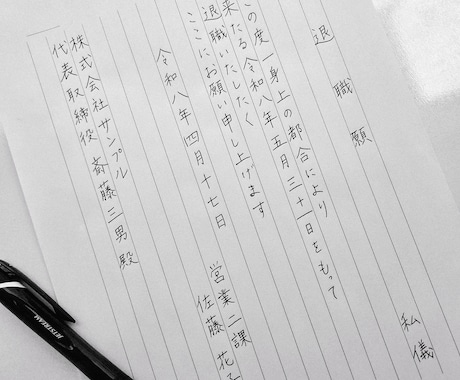 退職願
私儀
この度一身上の都合により
来たる令和八年五月三十一日をもって
退職いたしたく
ここにお願い申し上げます
令和八年四月十七日
営業二課
佐藤花子
株式会社サンプル
代表取締役 斎藤三男殿
JETSTREAM